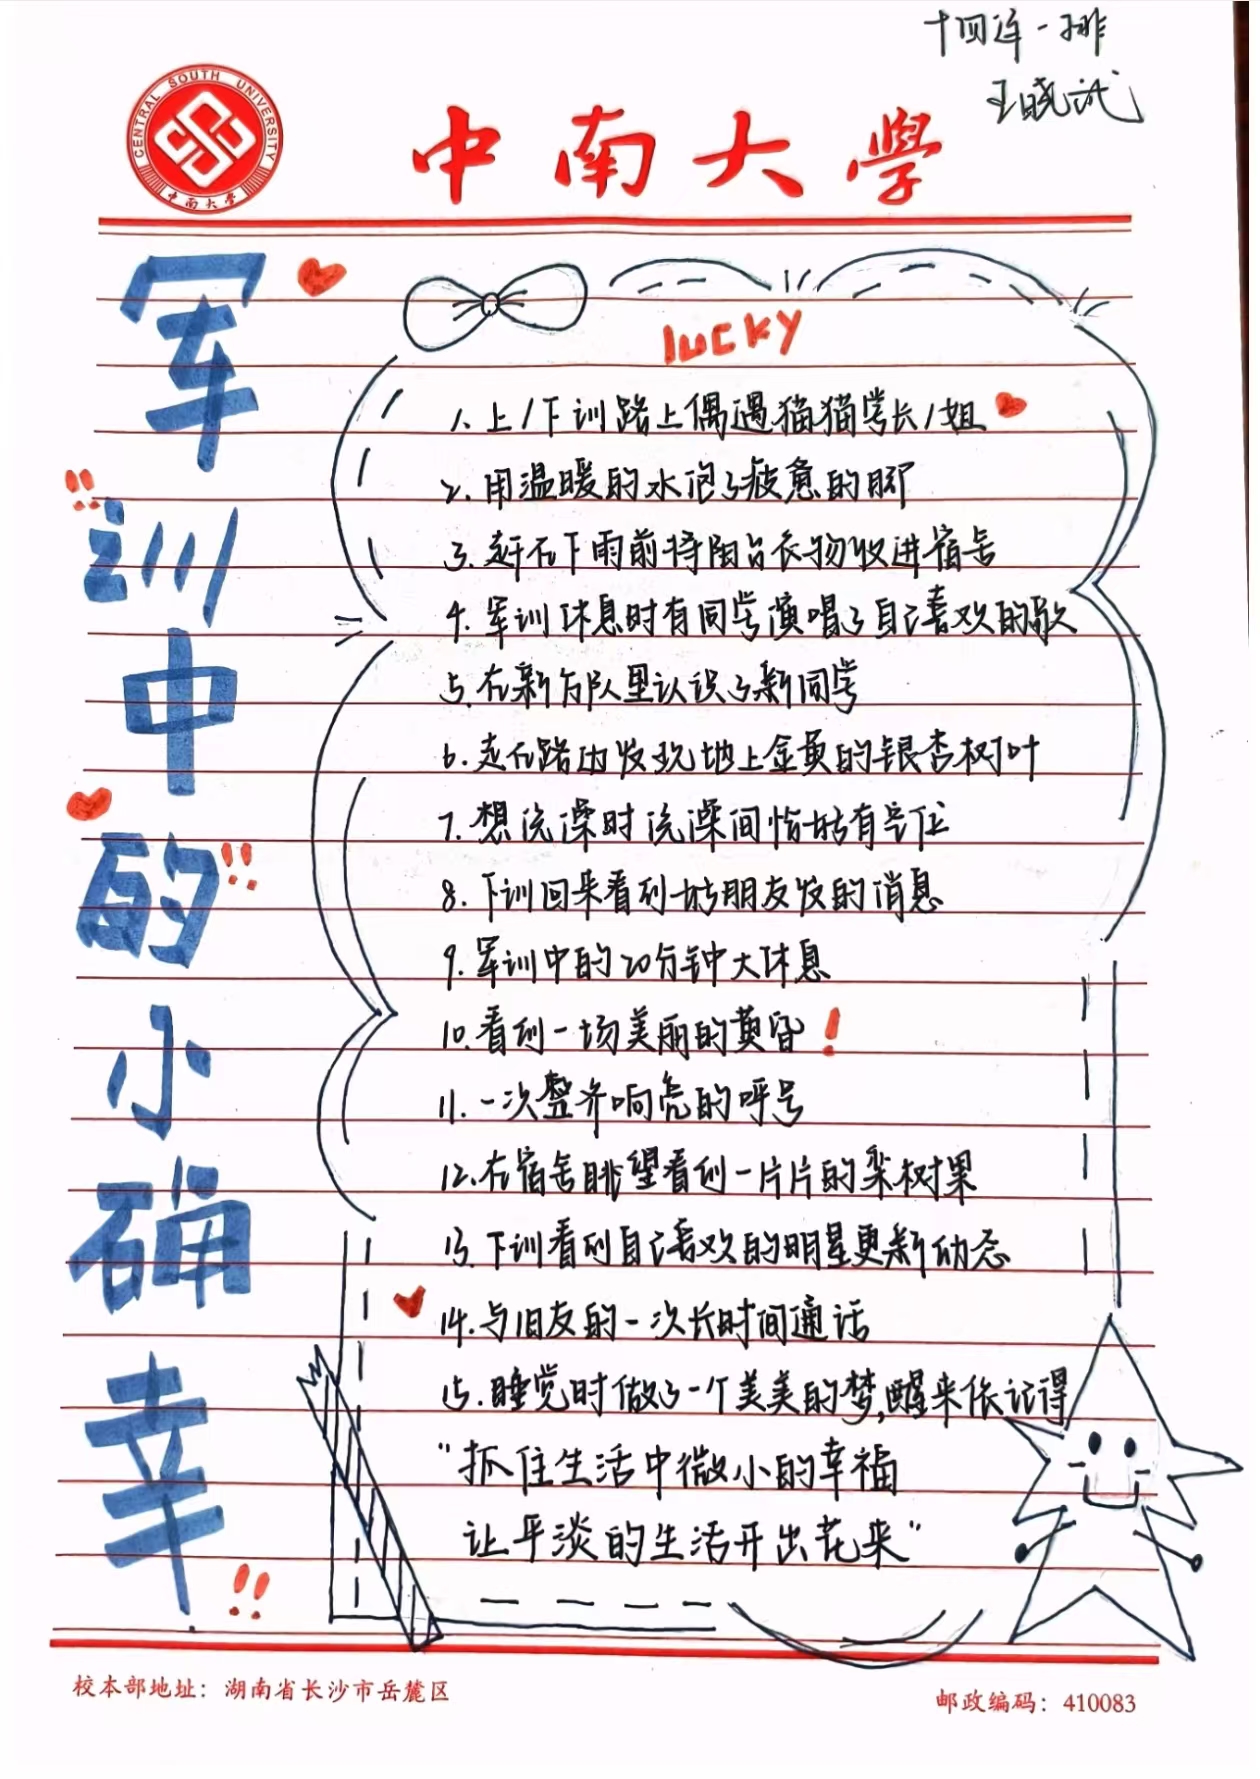 十四连一排
王晓斌
CENTRAL SOUTH UNIVERSITY
中南大学
中南大學
军训中的小确幸
lucky
1.上/下训路上偶遇猫猫学长/姐
2.用温暖的水泡了疲惫的脚
3.赶在下雨前将阳台衣物收进宿舍
4.军训休息时有同学演唱了自己喜欢的歌
5.在新方队里认识了新同学
6.走在路边发现地上金黄的银杏树叶
7.想洗澡时洗澡间恰好有空位
8.下训回来看到好朋友发的消息
9.军训中的20分钟大休息
10.看到一场美丽的黄昏!
11.一次整齐响亮的呼号
12.在宿舍眺望看到一片片的栾树果
13.下训看到自己喜欢的明星更新动态
14.与旧友的一次长时间通话
15.睡觉时做了一个美美的梦,醒来依记得
"抓住生活中微小的幸福
让平淡的生活开出花来"
校本部地址：湖南省长沙市岳麓区
邮政编码：410083